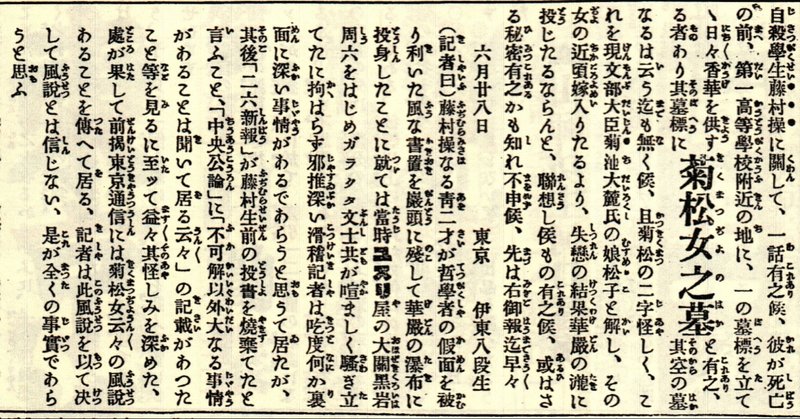 自殺學生藤村操に關して、一話有之候、彼が死亡
の前、第一高等學校附近の地に、一の墓標を立て
ゝ日々香華を供す
る者あり其墓標に
菊松女之墓
と有之、
其空の墓
なるは云う迄も無く候、且菊松の二字怪しく、こ
れを現文部大臣菊池大麓氏の娘松子と解し、その
女の近頃嫁入りたるより、失戀の結果華嚴の瀧に
投じたるならんと、聯想し候もの有之候、或はさ
る秘密有之かも知れ不申候、先は右御報迄早々
六月廿八日　東京　伊東八段生
(記者曰)藤村操なる靑二才が哲學者の假面を被
り利いた風な書置を巖頭に殘して華嚴の瀑布に
投身したことに就ては當時ユスリ屋の大關黒岩
周六をはじめガラクタ文士共が喧ましく騒ぎ立
てたに拘はらず邪推深い滑稽記者は吃度何か裏
面に深い事情があるでわらうと思うて居たが、
其後「二六新報」が藤村生前の投書を燒棄てたと
言ふこと、「中央公論」に「不可解以外大なる事情
があることは聞いて居る云々」の記載があつた
こと等を見るに至ッて益々其怪しみを深めた、
處が果して前掲東京通信には菊松女云々の風説
あることを傳へて居る、記者は此風説を以て决
して風説とは信じない、是が全くの事實であら
うと思ふ